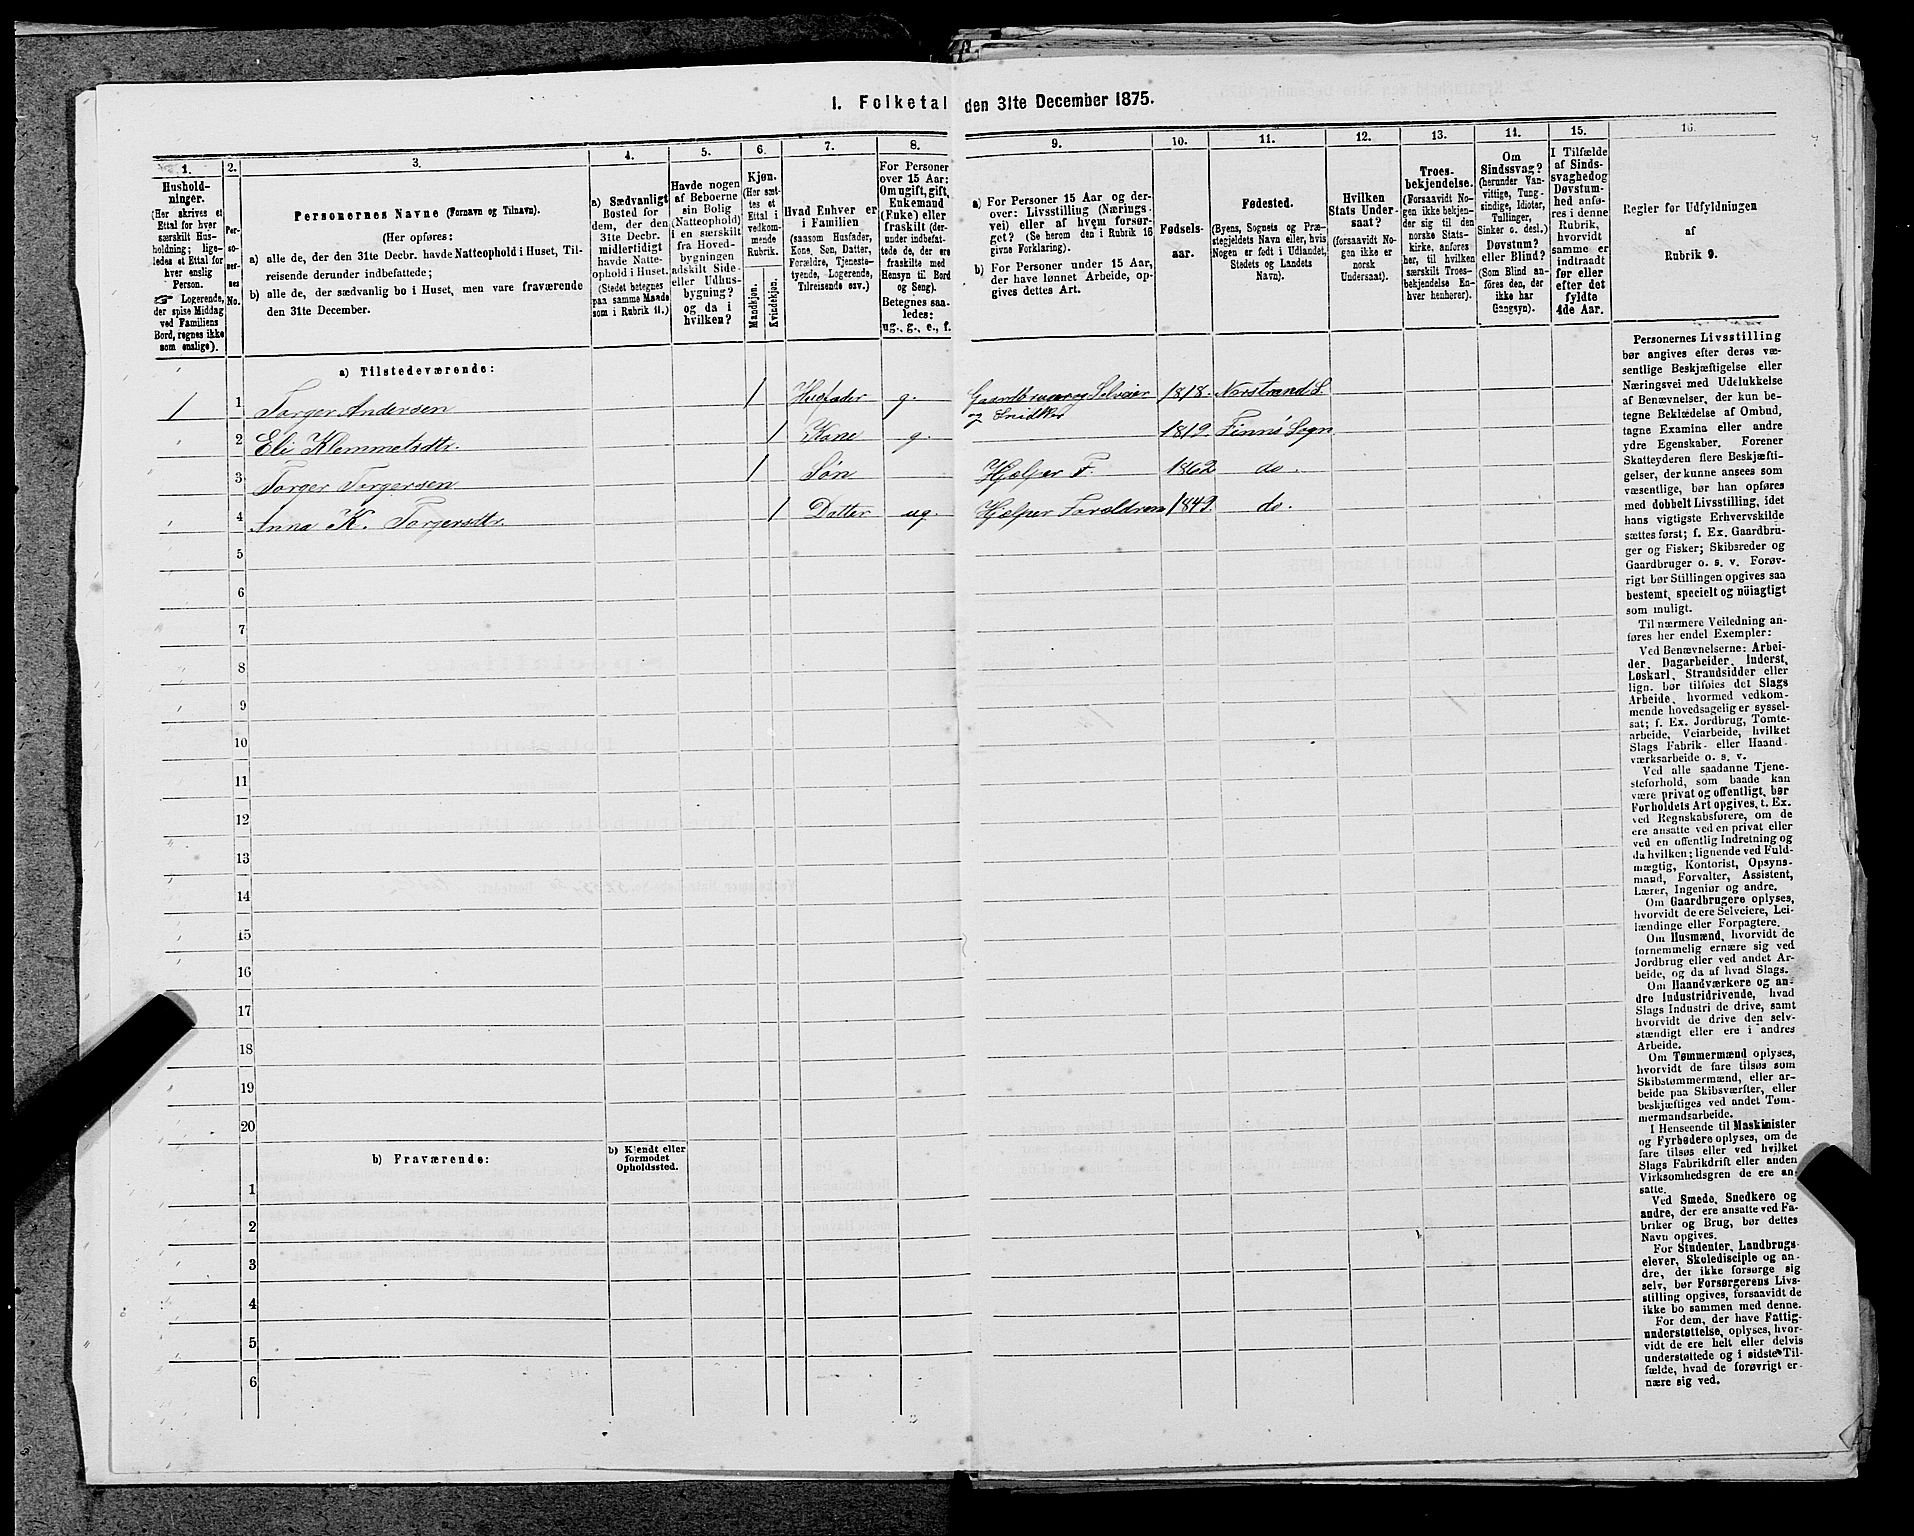 I. Folketal den 31te December 1875.
1. 2. 3. 4. 5. 6. 7. 8. 9. 10. 11. 12. 13. 14. 15. 16.
Hushold-
ninger.
(Her skrives et
Ettal for hver
særskilt Hus-
holdning; lige-
ledes et Ettal for
hver enslig
Person.
☞ Logerende,
der spise Middag
ved Familiens
Bord, regnes ikke
som enslige).
Per-
so-
ner-
nes
No.
Personernes Navne (Fornavn og Tilnavn).
(Her opføres:
a) alle de, der den 31te Decbr. havde Natteophold i Huset, Til-
reisende derunder indbefattede;
b) alle de, der sædvanlig bo i Huset, men vare fraværende
den 31te December.
a) Sædvanligt
Bosted for
dem, der den
31te Decbr.
midlertidigt
havde Natte-
ophold i Huset.
(Stedet betegnes
paa samme Maade
som i Rubrik 11.)
Havde nogen
af Beboerne
sin Bolig
(Natteophold)
i en særskilt
fra Hoved-
bygningen
adskilt Side-
eller Udhus-
bygning?
og da i
hvilken?
Kjøn.
(Her sæt-
tes et
Ettal i
vedkom-
mende
Rubrik.
Mandkjøn.
Kvindekjøn.
Hvad Enhver er
i Familien
(saasom Husfader,
Kone, Søn, Datter,
Forældre, Tjeneste-
tyende, Logerende,
Tilreisende osv.)
For Personer
over 15 Aar:
Om ugift, gift,
Enkemand
(Enke) eller
fraskilt (der-
under indbefat-
tede de, der
ere fraskilte med
Hensyn til Bord
og Seng).
Betegnes saa-
ledes:
ug., g., e., f.
a) For Personer 15 Aar og der-
over: Livsstilling (Nærings-
vei) eller af hvem forsør-
get? (Se herom den i Rubrik 16
givne Forklaring).
b) For Personer under 15 Aar,
der have lønnet Arbeide, op-
gives dettes Art.
Fødsels-
aar.
Fødested.
(Byens, Sognets og Præ-
stegjeldets Navn eller, hvis
Nogen er født i Udlandet,
Stedets og Landets
Navn).
Hvilken
Stats Under-
saat?
(forsaavidt No-
gen ikke er
norsk
Undersaat).
Troes-
bekjendelse.
(Forsaavidt No-
gen ikke bekjen-
der sig til den
norske Stats-
kirke, anføres
her, til hvilken
særskilt Troes-
bekjendelse En-
hver henhører).
Om
Sindssvag?
(herunder Van-
vittige, Tung-
sindige, Idioter,
Tullinger,
Sinker o. desl.)
Døvstum?
eller Blind?
(Som Blind an-
føres den, der
ikke har
Gangsyn).
I Tilfælde
af Sinds-
svaghed og
Døvstum-
hed anfø-
res i denne
Rubrik,
hvorvidt
samme er
indtraadt
før eller
efter det
fyldte
4de Aar.
Regler for Udfyldningen
af
Rubrik 9.
a) Tilstedeværende:
1 1 Torger Andersen 1 Husfader g. Gaardbruger Selveier 1818. Norstrand S.
og Snidker
2 Eli Klemmetsdtr. 1 Kone g. 1819. Finnø Sogn
3 Torger Torgersen 1 Søn Hjelper F. 1862 do.
4 Anna K. Torgersdtr. 1 Datter ug. Hjelper Foraldrene 1849. do.
5
6
7
8
9
10
11
12
13
14
15
16
17
18
19
20
b) Fraværende:
b) Kjendt eller
formodet
Opholdssted.
1
2
3
4
5
6
Personernes Livsstilling
bør angives efter deres væ-
sentlige Beskjæftigelse eller
Næringsvei med Udelukkelse
af Benævnelser, der kun be-
tegne Beklædelse af Ombud,
tagne Examina eller andre
ydre Egenskaber. Forener
Skatteyderen flere Beskjæfti-
gelser, der kunne ansees som
væsentlige, bør han opføres
med dobbelt Livsstilling, idet
hans vigtigste Erhvervskilde
sættes først; f. Ex. Gaardbru-
ger og Fisker; Skibsreder og
Gaardbruger o. s. v. Forøv-
rigt bør Stillingen opgives saa
bestemt, specielt og nøiagtigt
som muligt.
Til nærmere Veiledning an-
føres her endel Exempler:
Ved Benævnelserne: Arbei-
der, Dagarbeider, Inderst,
Løskarl, Strandsidder eller
lign. bør tilføies det Slags
Arbeide, hvormed vedkom-
mende hovedsagelig er syssel-
sat; f. Ex. Jordbrug, Tomte-
arbeide, Veiarbeide, hvilket
Slags Fabrik- eller Haand-
værksarbeide o. s. v.
Ved alle saadanne Tjene-
steforhold, som baade kan
være privat og offentligt, bør
Forholdets Art opgives, t. Ex.
ved Regnskabsførere, om de
ere ansatte ved en privat eller
ved en offentlig Indretning og
da hvilken; lignende ved Fuld-
mægtig, Kontorist, Opsyns-
mand, Forvalter, Assistent,
Lærer, Ingeniør og andre.
Om Gaardbrugere oplyses,
hvorvidt de ere Selveiere, Lei-
lændinge eller Forpagtere.
Om Husmænd, hvorvidt de
fornemmelig ernære sig ved
Jordbrug eller ved andet Ar-
beide, og da af hvad Slags.
Om Haandværkere og an-
dre Industridrivende, hvad
Slags Industri de drive, samt
hvorvidt de drive den selv-
stændigt eller ere i andres
Arbeide.
Om Tømmermænd oplyses,
hvorvidt de fare tilsøs som
Skibstømmermænd, eller ar-
beide paa Skibsværfter, eller
beskjæftiges ved andet Tøm-
mermandsarbeide.
I Henseende til Maskinister
og Fyrbødere oplyses, om de
fare tilsøs eller ved hvilket
Slags Fabrikdrift eller anden
Virksomhedsgren de ere an-
satte.
Ved Smede, Snedkere og
andre, der ere ansatte ved Fa-
briker og Brug, bør dettes
Navn opgives.
For Studenter, Landbrugs-
elever, Skoledisciple og an-
dre, der ikke forsørge sig
selv, bør Forsørgerens Livs-
stilling opgives, forsaavidt de
ikke bo sammen med denne.
For dem, der have Fattig-
understøttelse, oplyses, hvor-
vidt de ere helt eller delvis
understøttede og i sidste Til-
fælde, hvad de forøvrigt er-
nære sig ved.